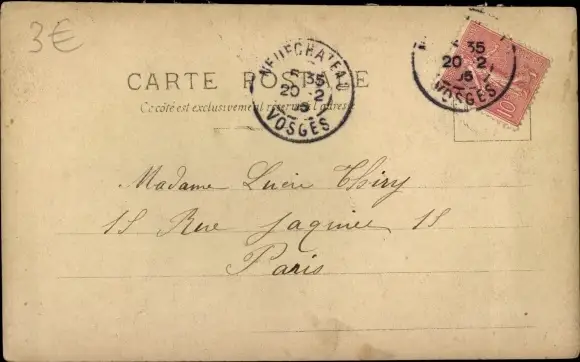 3€
CARTE POSTALE
Ce côté est exclusivement réservé à l'adresse
NEUFCHATEAU
5 35
20 2
05
VOSGES
35
20 2
05
VOSGES
10
Madame Lucie Thiry
15 Rue Jaquier 15
Paris